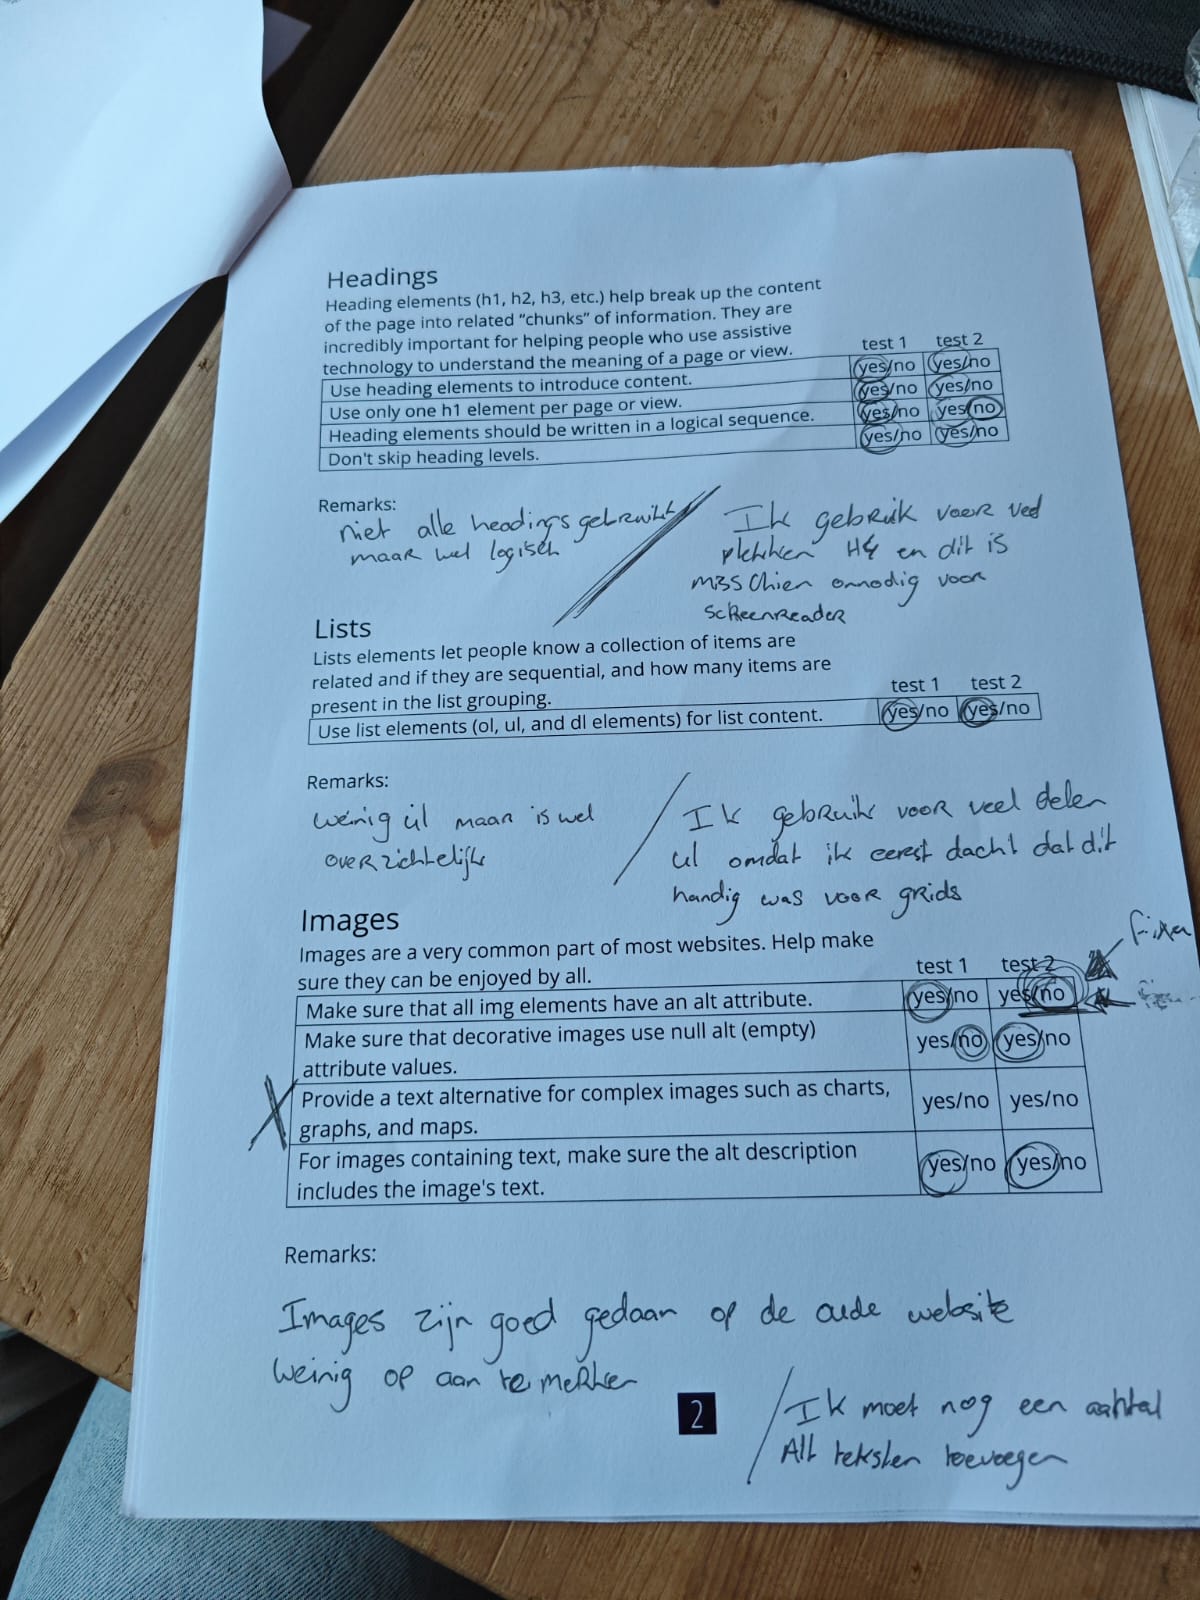 Headings
Heading elements (h1, h2, h3, etc.) help break up the content
of the page into related “chunks” of information. They are
incredibly important for helping people who use assistive
technology to understand the meaning of a page or view.
test 1 test 2
Use heading elements to introduce content. yes/no yes/no
Use only one h1 element per page or view. yes/no yes/no
Heading elements should be written in a logical sequence. yes/no yes/no
Don't skip heading levels. yes/no yes/no
Remarks:
niet alle headings gebruikt
maar wel logisch
Ik gebruik voor veel
plekken H4 en dit is
misschien onnodig voor
screenreader
Lists
Lists elements let people know a collection of items are
related and if they are sequential, and how many items are
present in the list grouping.
test 1 test 2
Use list elements (ol, ul, and dl elements) for list content. yes/no yes/no
Remarks:
weinig ul maar is wel
overzichtelijk
Ik gebruik voor veel delen
ul omdat ik eerst dacht dat dit
handig was voor grids
Images
Images are a very common part of most websites. Help make
sure they can be enjoyed by all.
test 1 test 2
Make sure that all img elements have an alt attribute. yes/no yes/no
Make sure that decorative images use null alt (empty)
attribute values. yes/no yes/no
Provide a text alternative for complex images such as charts,
graphs, and maps. yes/no yes/no
For images containing text, make sure the alt description
includes the image's text. yes/no yes/no
Remarks:
Images zijn goed gedaan op de oude website
weinig op aan te merken
2
Ik moet nog een aantal
Alt teksten toevoegen